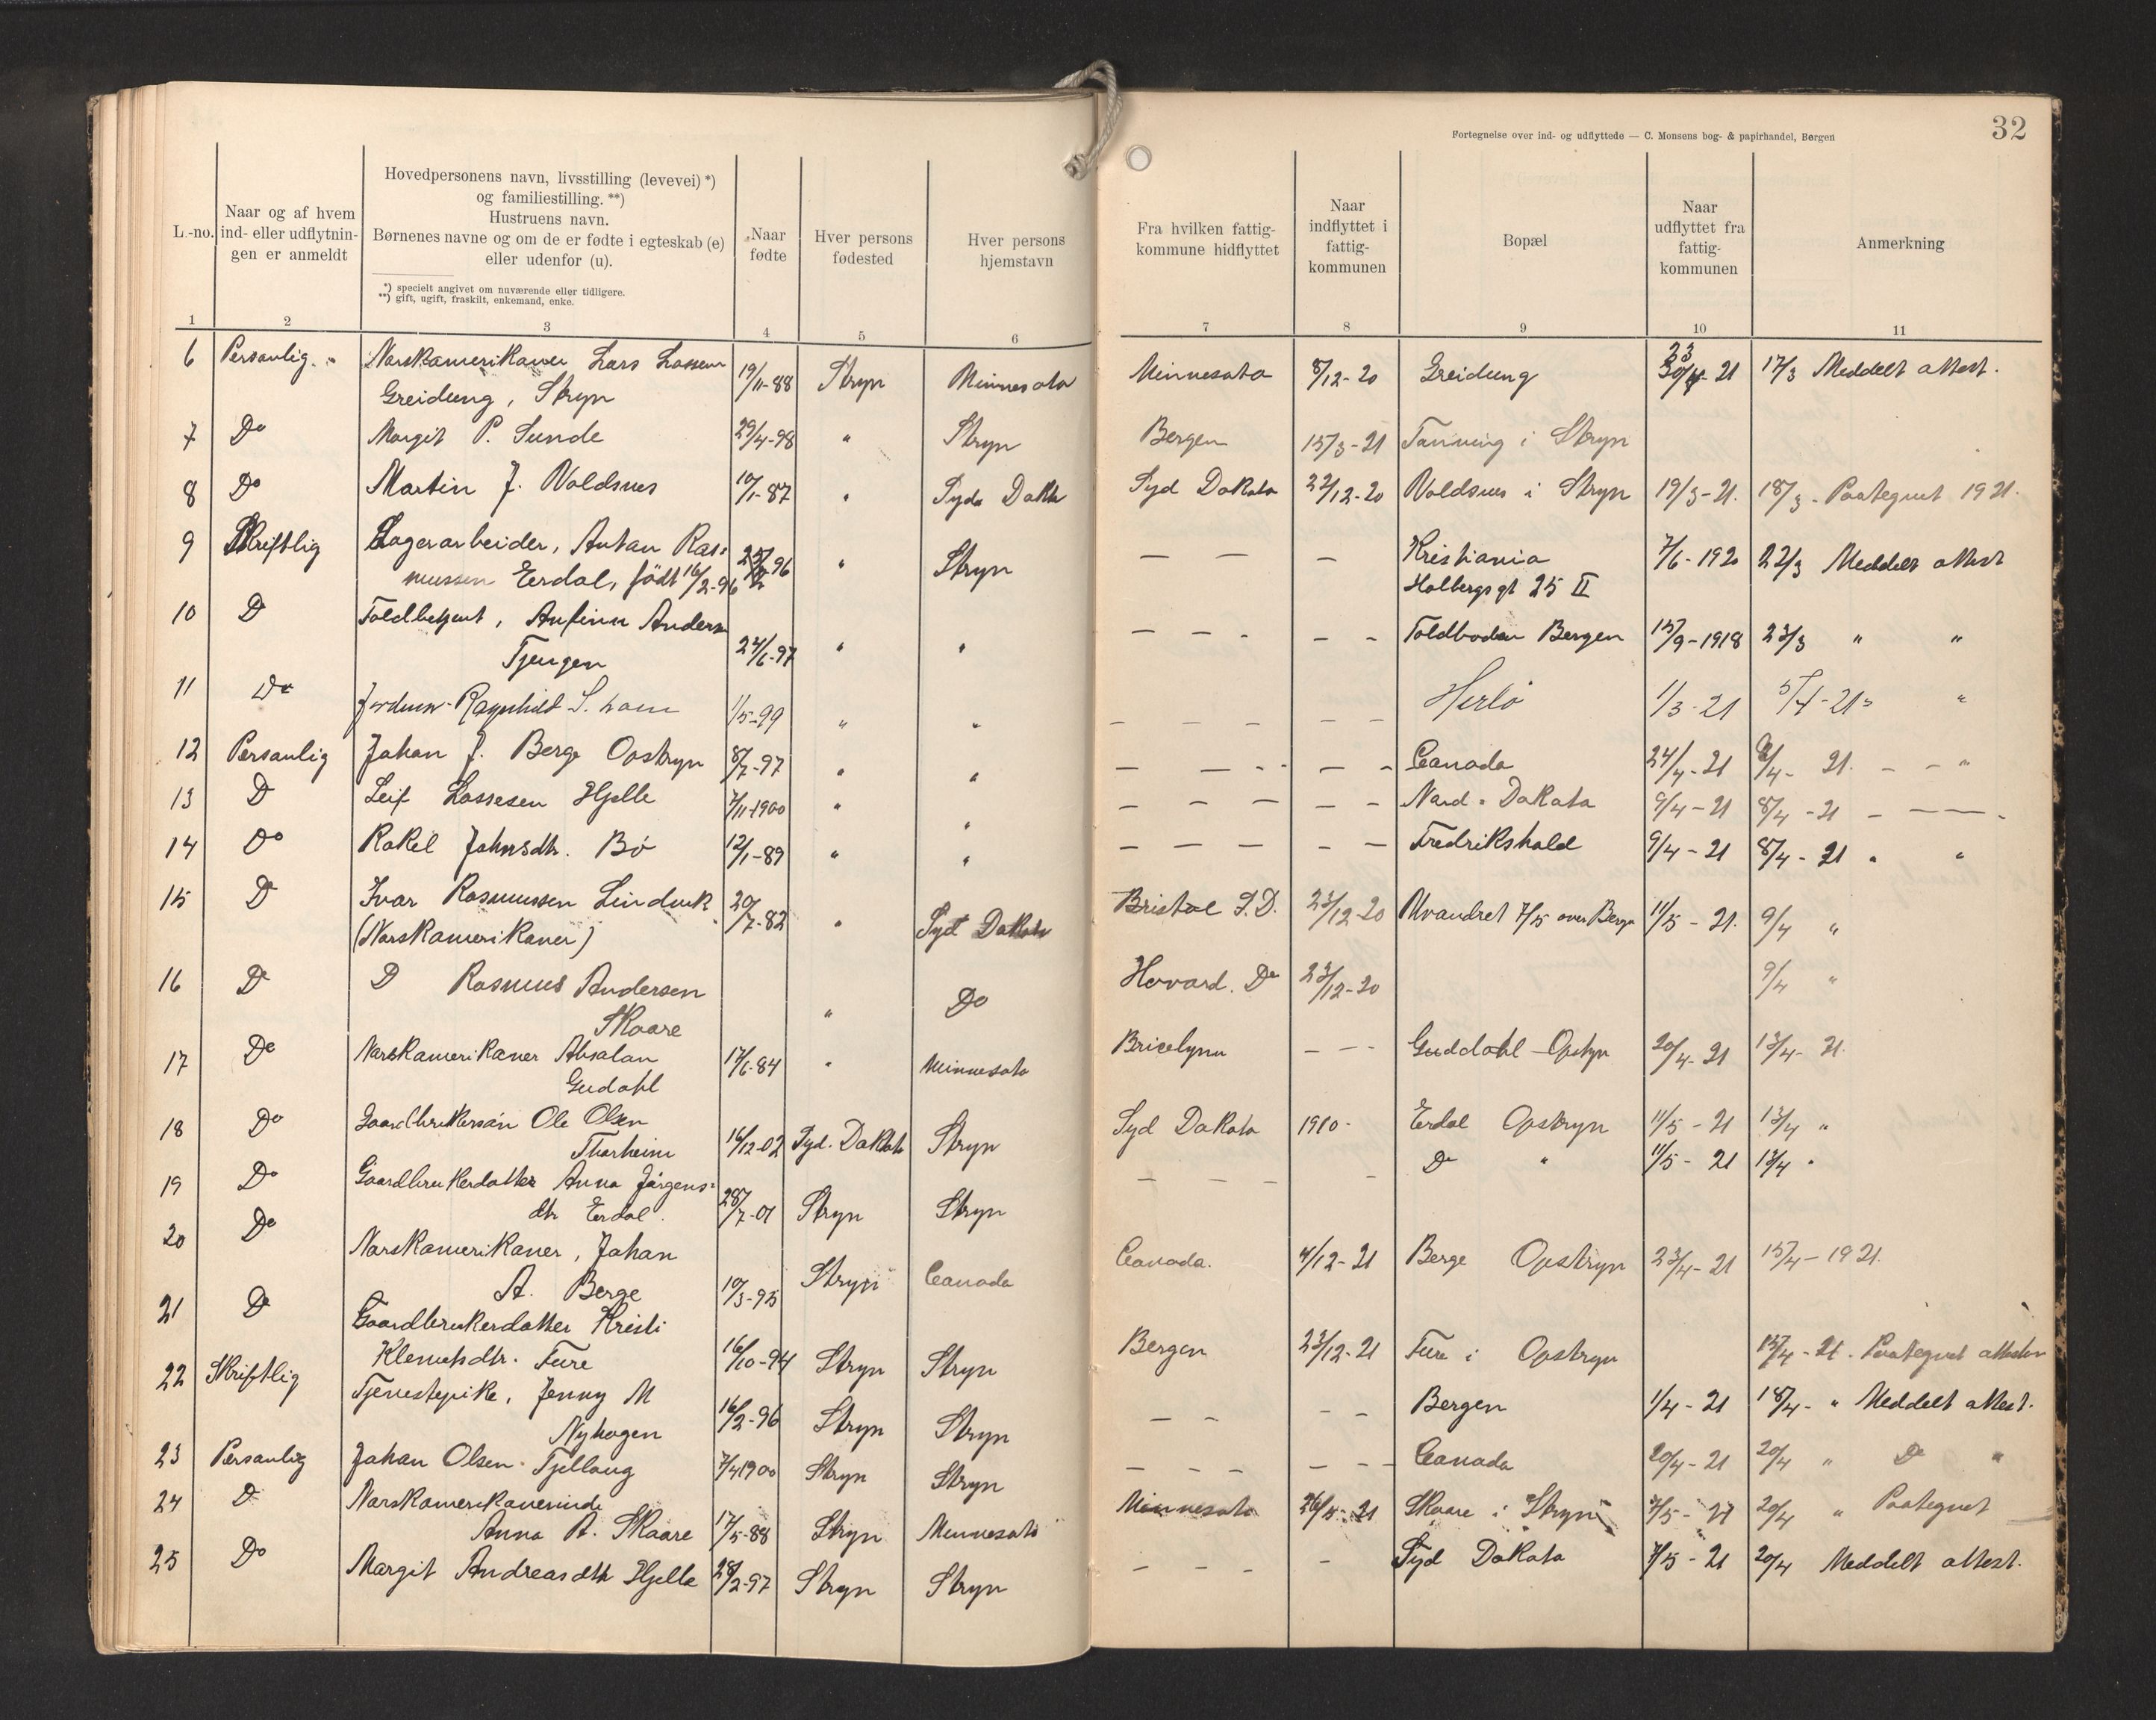 32
Fortegnelse over ind- og udflyttede — C. Monsens bog- & papirhandel, Bergen
L.-no.
Naar og af hvem
ind- eller udflytnin-
gen er anmeldt
Hovedpersonens navn, livsstilling (levevei) *)
og familiestilling. **)
Hustruens navn.
Børnenes navne og om de er fødte i egteskab (e)
eller udenfor (u).
*) specielt angivet om nuværende eller tidligere.
**) gift, ugift, fraskilt, enkemand, enke.
Naar
fødte
Hver persons
fødested
Hver persons
hjemstavn
Fra hvilken fattig-
kommune hidflyttet
Naar
indflyttet i
fattig-
kommunen
Bopæl
Naar
udflyttet fra
fattig-
kommunen
Anmerkning
1 2 3 4 5 6 7 8 9 10 11
6 Personlig. Norskamerikaner Lars Lassen 19/11-88 Stryn Minnesota Minnesota 8/12-20 Greidung 23/4-21 17/3 Meddelt attest.
Greidung, Stryn
7 Do Margit P. Sunde 29/4-98 " Stryn Bergen 15/3-21 Tonning i Stryn
8 Do Martin J. Voldsnes 10/1-87 " Syd Dakota Syd Dakota 22/12-20 Voldsnes i Stryn 19/3-21. 18/3. Paategnet 1921.
9 Skriftlig Lagerarbeider, Anton Ras= " Stryn — — — Kristiania 7/6-1920 22/3 Meddelt attest
mussen Eerdal, født 16/2-96 Holbergs gt 25 II
10 D Toldbetjent, Anfinn Anders — — - - - Toldboden Bergen 15/9-1918 23/3 " "
Tjengen 24/6-97 " "
11 Do Ragnhild S. 1/5-99 " " - - - - - Herlø 1/3-21 5/4-21 " "
12 Personlig Johan J. Berge Opstryn 8/7-97 " " — — - - — - Canada 24/4-21 /4- 21. - - "
13 D Leif Lassesen Hjelle 7/11-1900 " " - - - - - Nord-Dakota 9/4-21 8/4-21 - —
14 Do Rakel Johnsdtr. Bø 12/1-89 " " - - - - - Fredrikshald 9/4-21 8/4-21 " "
15 D Ivar Rasmussen Lindvik 20/7-82 " Syd Dakota Bristol S.D. 23/12-20 Utvandret 7/5 over Bergen 11/5-21. 9/4 "
(Norskamerikaner)
16 Do D Rasmus Andersen " Do Hovard. Do 23/12-20 9/4 "
Skaare
17 Do Norskamerikaner Absalon 17/6-84 " Minnesota Bricelynn - - - Guddahl Opstryn 20/4-21 13/4-21.
Gudahl
18 Do Gaardbrukersøn Ole Olsen Syd Dakota 1910- Erdal Opstryn 11/5-21 13/4 "
Thorheim 16/12-02 Syd. Dakota Stryn
19 Do Gaardbrukerdatter Anna Jørgens= - - - - D " 11/5-21 13/4 "
dtr Erdal. 28/7-01 Stryn Stryn
20 Do Norskamerikaner, Johan Canada. 4/12-21 Berge Opstryn 23/4-21 15/4-1921.
A. Berge 10/3-95 Stryn Canada
21 D Gaardbrukerdatter Kristi
Klemetsdtr. Fure 16/10-94 Stryn Stryn Bergen 23/12-21 Fure i Opstryn 15/4-21. Paategnet attesten
22 Skriftlig Tjenestepike, Jenny M - - - - Bergen 1/4-21 18/4- " Meddelt attest.
Nyhagen 16/2-96 Stryn Stryn
23 Personlig Johan Olsen Tjellaug 7/4 1900 Stryn Stryn - - - - - - Canada 20/4-21 20/4 " D "
24 D Norskamerikanerinde Minnesota 26/5-21 Skaare i Stryn 7/5-21 20/4 " Paategnet
Anna A. Skaare 17/5-88 Stryn Minnesota
25 Do Margit Andreasdtr Hjelle 28/2-97 Stryn Stryn - - - - Syd Dakota 7/5-21 20/4 Meddelt attest.